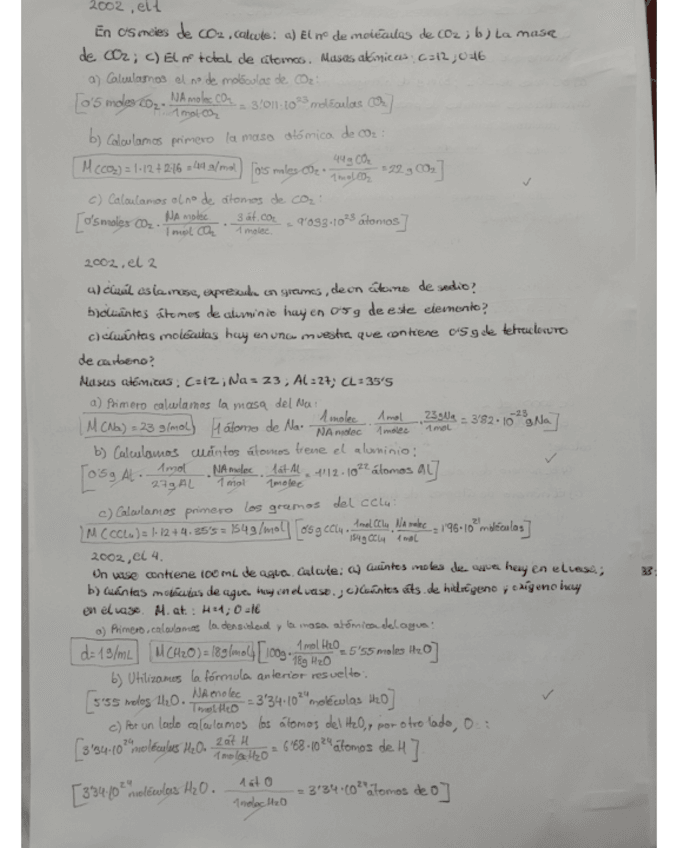 2002, ej 1
En 0'5 moles de CO2, calcule: a) El nº de moléculas de CO2; b) La masa
de CO2; c) El nº total de átomos. Masas atómicas: C=12; O=16
a) Calculamos el no de moléculas de CO2:
[0'5 moles CO2 · NA molec CO2 / 1 mol CO2 = 3'011·10^23 moléculas CO2]
b) Calculamos primero la masa atómica de CO2:
M(CO2) = 1·12+2·16 = 44 g/mol [0'5 moles CO2 · 44g CO2 / 1 mol CO2 = 22 g CO2]
c) Calculamos el nº de átomos de CO2:
[0'5 moles CO2 · NA molec / 1 mol CO2 · 3 át. CO2 / 1 molec. = 9'033·10^23 átomos]
2002, ej 2
a) ¿Cuál es la masa, expresada en gramos, de un átomo de sodio?
b) ¿Cuántos átomos de aluminio hay en 0'5 g de este elemento?
c) ¿Cuántas moléculas hay en una muestra que contiene 0'5 g de tetracloruro
de carbono?
Masas atómicas: C=12; Na=23; Al=27; Cl=35'5
a) Primero calculamos la masa del Na:
M(Na) = 23 g/mol [1 átomo de Na · 1 molec / NA molec · 1 mol / 1 molec · 23g Na / 1 mol = 3'82·10^-23 g Na]
b) Calculamos cuántos átomos tiene el aluminio:
[0'5 g Al · 1 mol / 27 g AL · NA molec / 1 mol · 1 át Al / 1 molec = 1'12·10^22 átomos Al]
c) Calculamos primero los gramos del CCl4:
M(CCl4) = 1·12+4·35'5 = 154 g/mol [0'5 g CCl4 · 1 mol CCl4 / 154 g CCl4 · NA molec / 1 mol = 1'95·10^21 moléculas]
2002, ej 4.
Un vaso contiene 100 mL de agua. Calcule: a) Cuántos moles de agua hay en el vaso;
b) Cuántas moléculas de agua hay en el vaso.; c) Cuántos áts. de hidrógeno y oxígeno hay
en el vaso. M. at.: H=1; O=16
a) Primero, calculamos la densidad y la masa atómica del agua:
d = 1 g/mL M(H2O) = 18 g/mol [100g · 1 mol H2O / 18g H2O = 5'55 moles H2O]
b) Utilizamos la fórmula anterior resuelto:
[5'55 moles H2O · NA molec / 1 mol H2O = 3'34·10^24 moléculas H2O]
c) Por un lado calculamos los átomos del H2O, y por otro lado, O:
[3'34·10^24 moléculas H2O · 2 át H / 1 molec H2O = 6'68·10^24 átomos de H]
[3'34·10^24 moléculas H2O · 1 át O / 1 molec H2O = 3'34·10^24 átomos de O]